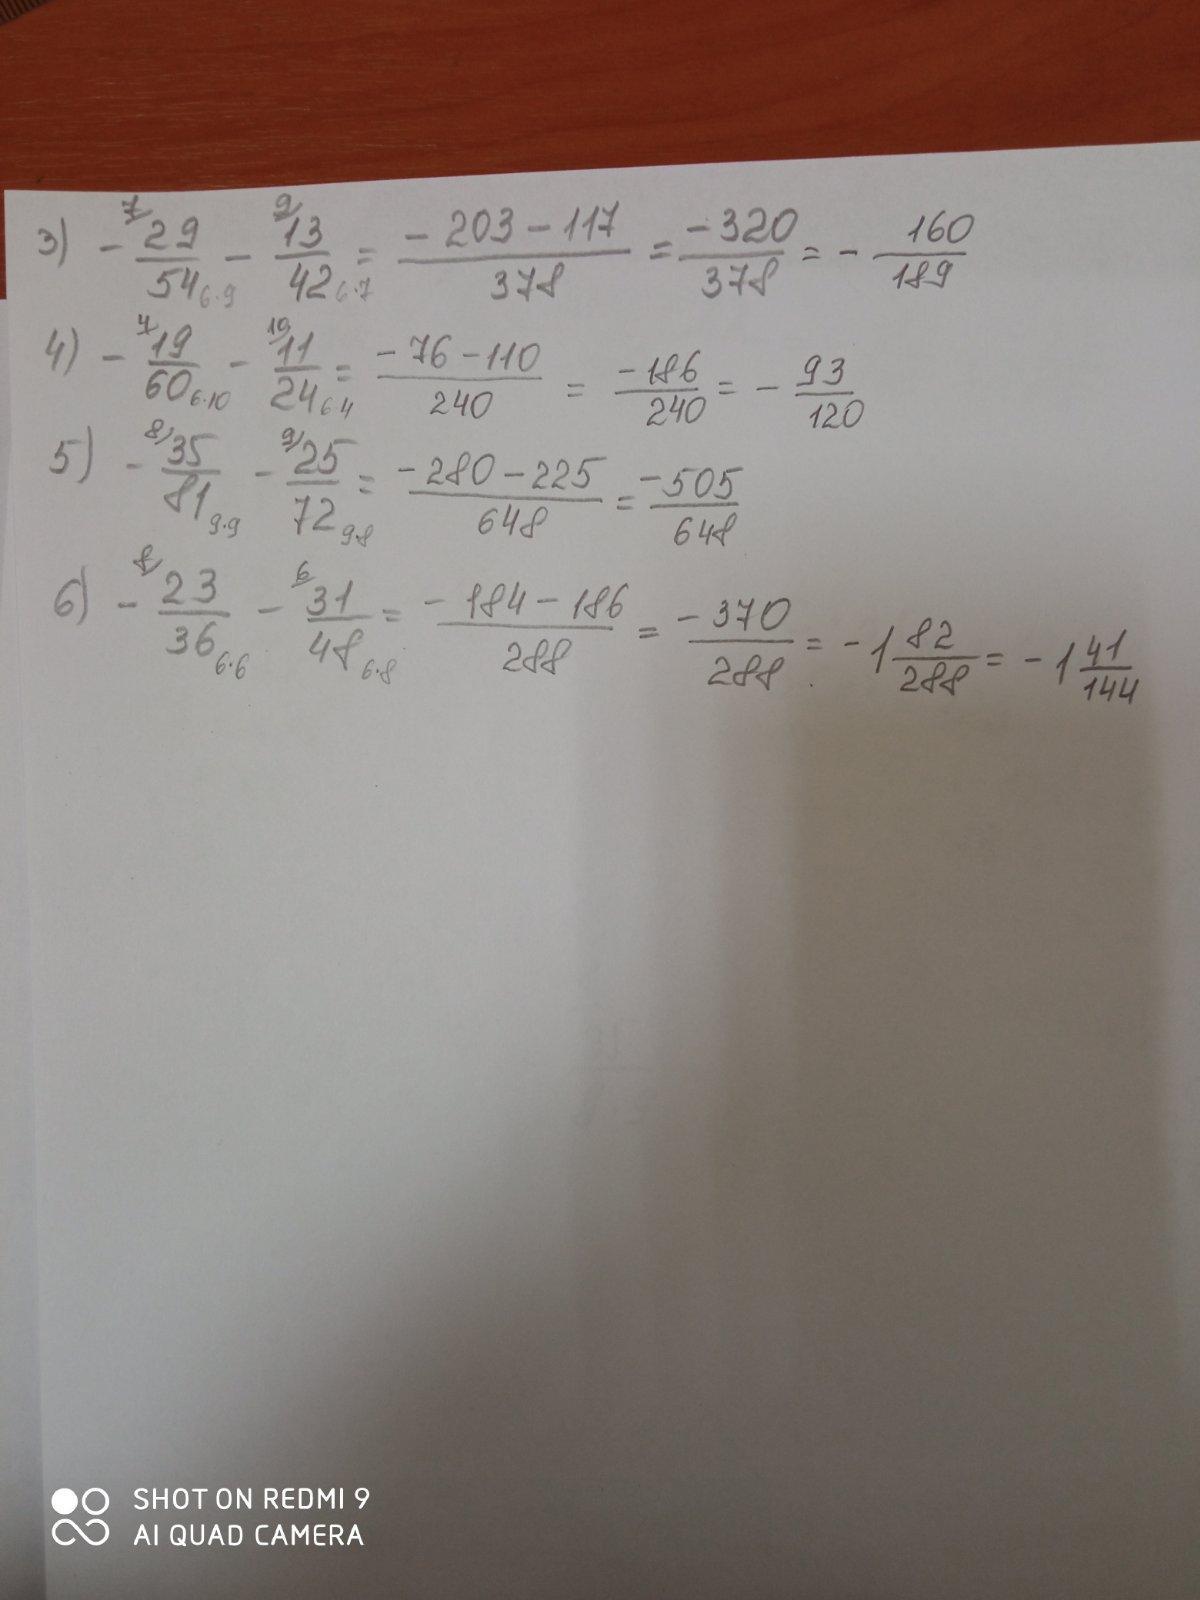 3) - 7/ 29/54 6·9 - 9/ 13/42 6·7 = - 203 - 117 / 378 = - 320 / 378 = - 160/189
4) - 4/ 19/60 6·10 - 10/ 11/24 6·4 = - 76 - 110 / 240 = - 186 / 240 = - 93/120
5) - 8/ 35/81 9·9 - 9/ 25/72 9·8 = - 280 - 225 / 648 = - 505 / 648
6) - 8/ 23/36 6·6 - 6/ 31/48 6·8 = - 184 - 186 / 288 = - 370 / 288 = - 1 82/288 = - 1 41/144
SHOT ON REDMI 9
AI QUAD CAMERA